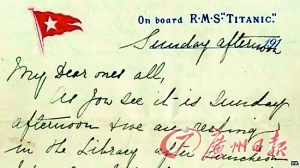 On board R·M·S "TITANIC".
Sunday afternoon
191
My Dear ones all,
As you see it is Sunday
afternoon & we are resting
in the Library after Luncheon
廣州日报